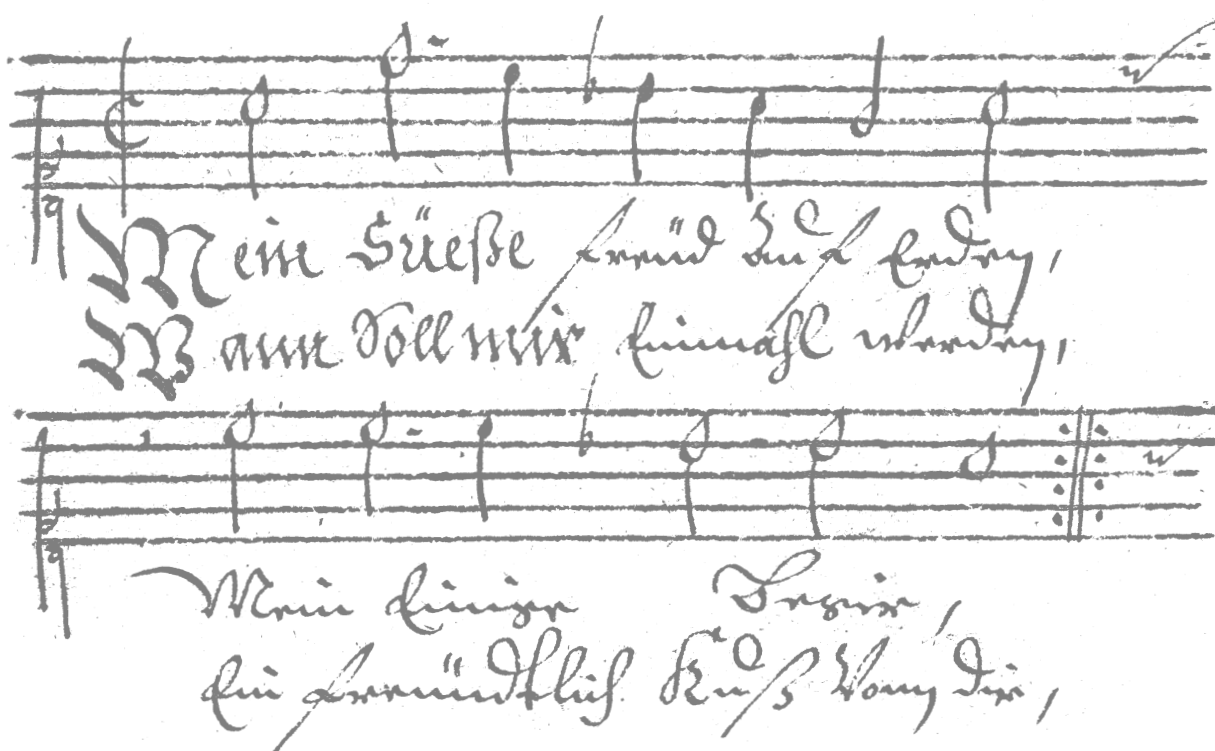 Mein Süeße freüd auf Erden,
Wann Soll mir Einmahl werden,
Mein Einige Begier,
Ein freündtlich Kuß Vonn dir,